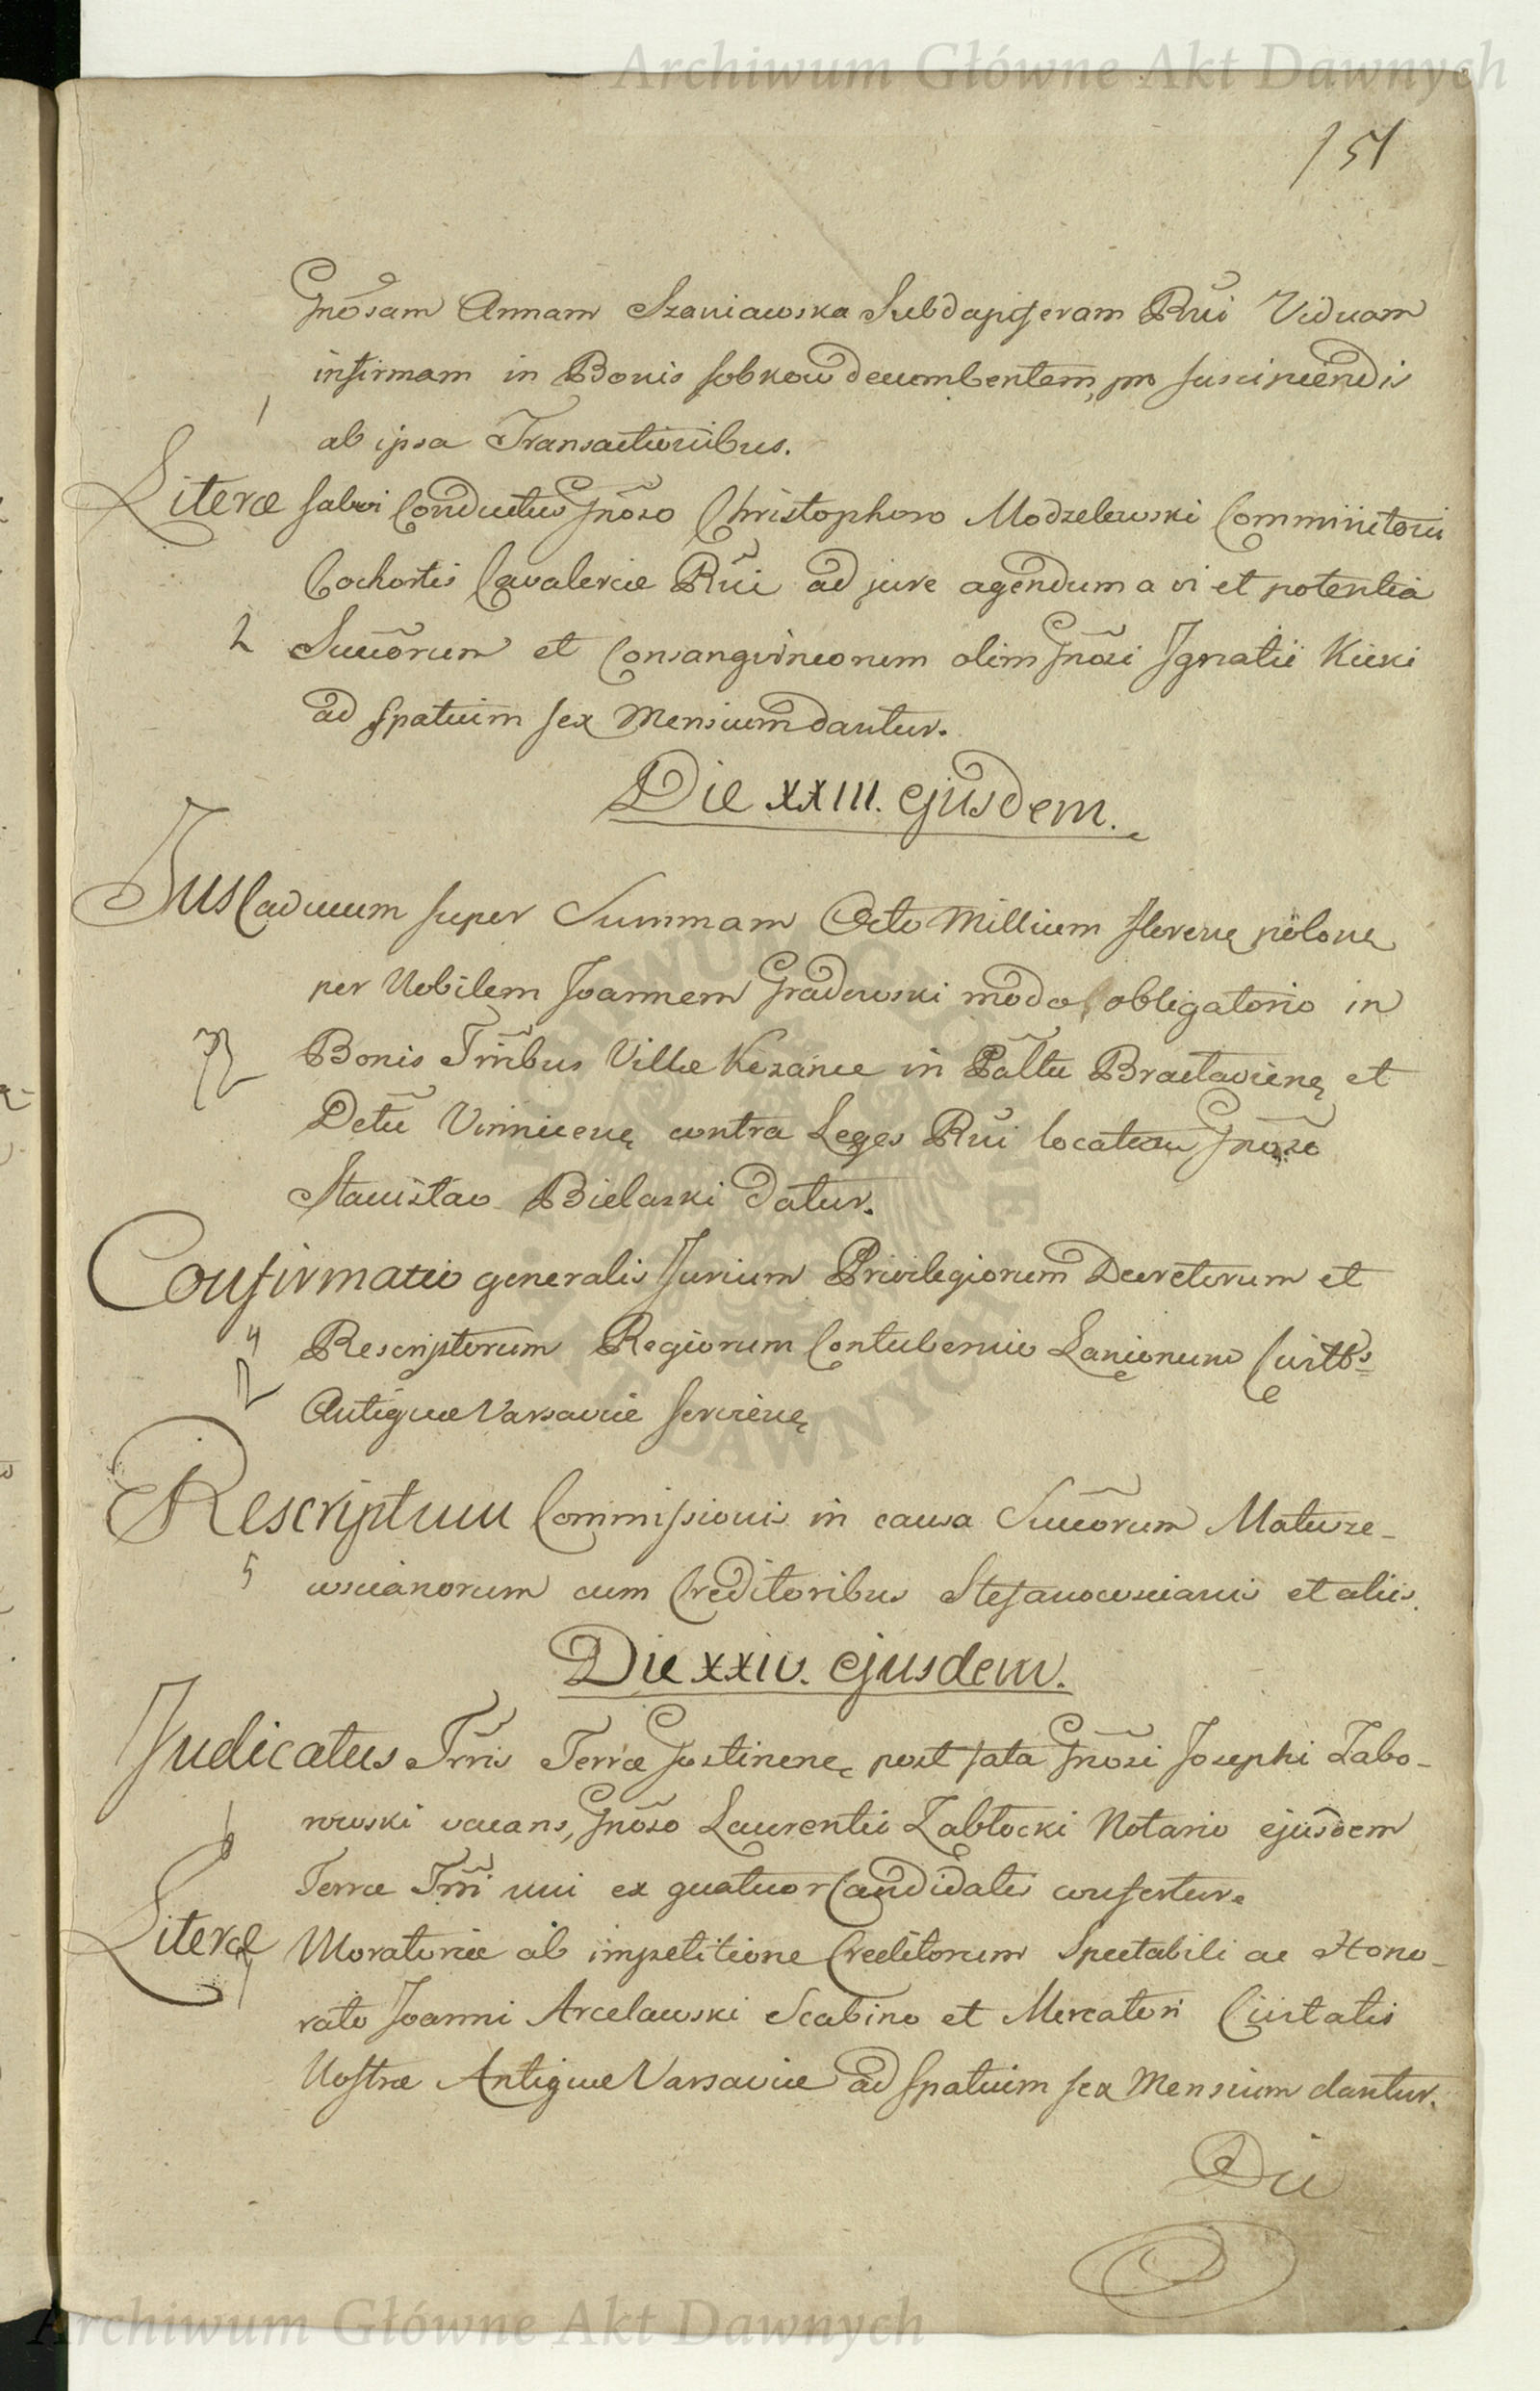 Archiwum Główne Akt Dawnych
151
Gnõsam Annam Szaniawska Subdapiferam Rñi Viduam
infirmam in Bonis Sobkow decumbentem, pro suscipiendis
1
ab ipsa Transactionibus.
Literæ salvi Conductus Gnõso Christophoro Modzelewski Commilitoni
Cohortis Cavaleriæ Rñi ad jure agendum a vi et potentia
2 Succõrum et Consangvineorum olim Gnõsi Ignatii Kicki
ad spatium sex Mensium dantur.
Die XXIII. ejusdem.
Jus Caducum super Summam Octo Millium floreñ poloñ
per Nobilem Joannem Gradowski modo obligatorio in
3 Bonis Trr̃ibus Villæ in Pãltu Braclavieñ et
Dctũ Vinniceñ contra Leges Rñi locatam Gnõso
Stanislao Bielaski datur.
Confirmatio generalis Jurium Privilegiorum Decretorum et
4 Rescriptorum Regiorum Contubernio Lanionum Civit̃ts
Antiquæ Varsaviæ servieñ
Rescriptum Commissionis in causa Succõrum Matusze-
5 wscianorum cum Creditoribus Stefanowscianis et aliis.
Die XXIV. ejusdem.
Judicatus Trr̃is Terræ Gostineneñ post fata Gnõsi Josephi Zabo-
rowski vacans, Gnõso Laurentio Zabłocki Notario ejusdem
Terræ Trr̃i uni ex quatuor Candidatis confertur.
Literæ Moratoriæ ab impetitione Creditorum Spectabili ac Hono-
rato Joanni Arcelawski Scabino et Mercatori Civitatis
Nostræ Antiquæ Varsaviæ ad spatium sex Mensium dantur.
Die
Archiwum Główne Akt Dawnych